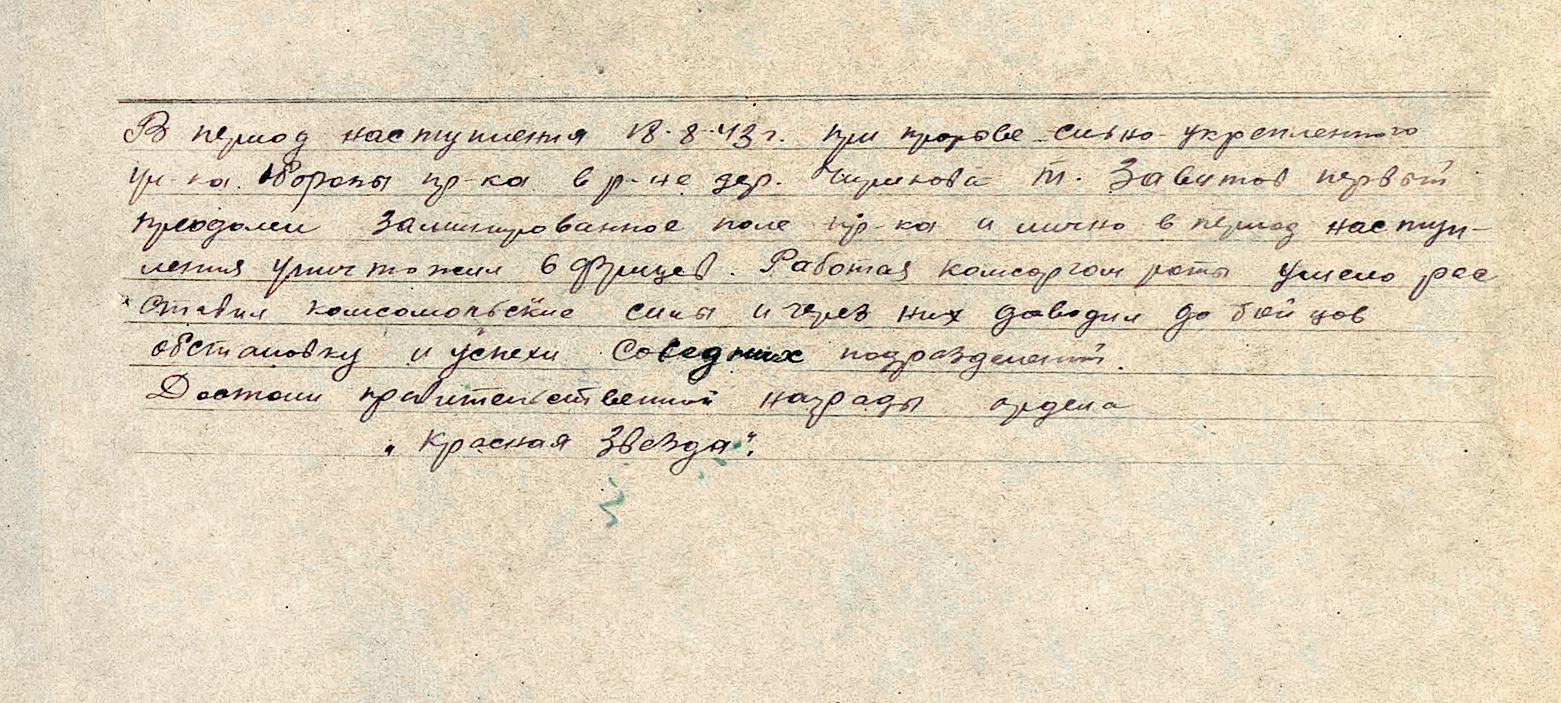 В период наступления 18.8.43 г. при прорыве сильно укрепленного
уч-ка обороны пр-ка в р-не дер. т. Завитов первый
преодолел заминированное поле пр-ка и лично в период наступ-
ления уничтожил 6 фрицев. Работая комсоргом роты умело рас
ставил комсомольские силы и через них доводил до бойцов
обстановку и успехи соседних подразделений.
Достоин правительственной награды ордена
„Красная Звезда".